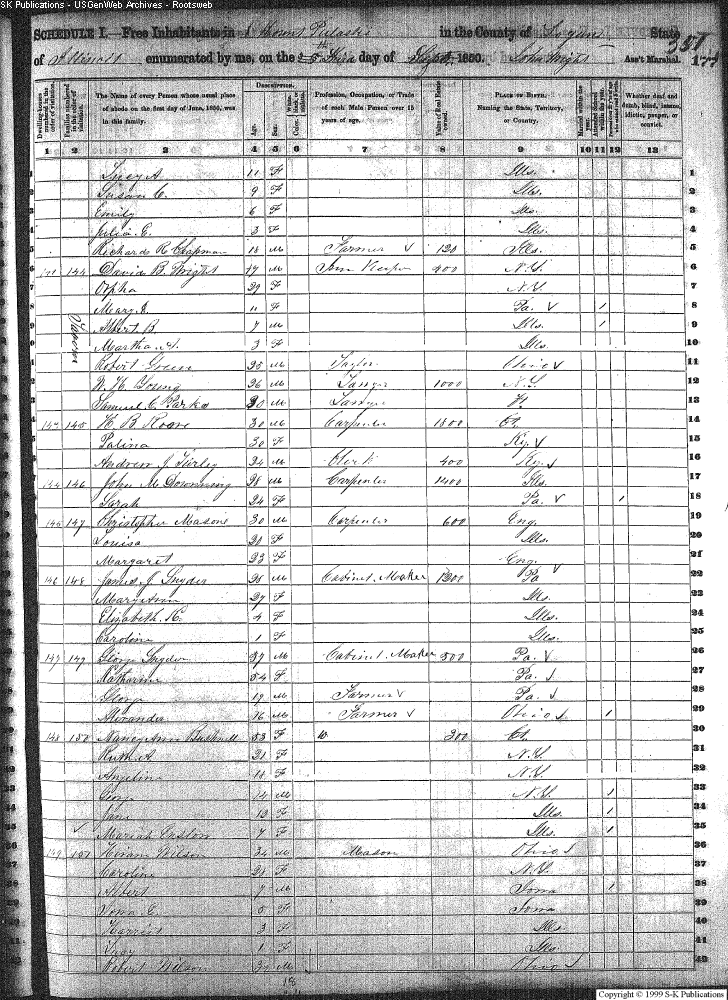 S-K Publications - USGenWeb Archives - Rootsweb
SCHEDULE I.—Free Inhabitants in Mount Pulaski in the County of Logan State
of Illinois enumerated by me, on the day of Sept 1850. John Wright Ass't Marshal. 357
Dwelling-houses numbered in the order of visitation.
Families numbered in the order of visitation.
The Name of every Person whose usual place of abode on the first day of June, 1850, was in this family.
DESCRIPTION.
Age.
Sex.
Color,
Profession, Occupation, or Trade of each Male Person over 15 years of age.
Value of Real Estate owned.
PLACE OF BIRTH. Naming the State, Territory, or Country.
Married within the year.
Whether deaf and dumb, blind, insane, idiotic, pauper, or convict.
1 2 3 4 5 6 7 8 9 10 11 12 13
1 Lucy A. 11 F Ills. 1
2 Susan C. 9 F Ills. 2
3 Emily 6 F Ills. 3
4 Julia E. 3 F Ills. 4
5 Richards R. Chapman 18 M Farmer 120 Ills. 5
6 144 David B. Wright 47 M Inn Keeper 400 N.Y. 6
7 Orpha 39 F N.Y. 7
8 Mary J. 11 F Pa. 1 8
9 Albert B. 7 M Ills. 1 9
10 Martha A. 3 F Ills. 10
Robert Green 25 M Taylor Ohio 11
N. K. Young 26 M Tanner 1000 N.Y. 12
Samuel C. Parks 30 M Lawyer 13
145 30 M Carpenter 1800 Ct. 14
Palina 30 F Ky. 15
Andrew J. Turley 24 M Clerk 400 Ky. 16
144 146 John M. Downing 28 M Carpenter 1400 Ills. 17
Sarah 24 F Pa. 1 18
145 147 Christopher Masons 30 M Carpenter 600 Eng. 19
Louisa 21 F Ills. 20
Margaret 23 F Eng. 21
146 148 James J. Snyder 28 M Cabinet Maker 1200 Pa 22
Mary Ann 27 F Ills. 23
Elizabeth K. 4 F Ills. 24
Caroline 1 F Ills. 25
147 149 George Snyder 57 M Cabinet Maker 500 Pa. 26
Katharine 54 F Pa. 27
George 19 M Farmer Pa. 28
Alexander 16 M Farmer Ohio 1 29
148 150 Nancy Ann Bushnell 53 F 300 Ct. 30
Ruth A. 21 F N.Y. 31
Angelina F N.Y. 32
George 14 M N.Y. 1 33
Jane 10 F Ills. 1 34
Mariah Easton 7 F Ills. 1 35
149 151 Hiram Wilson 34 M Mason Ohio 36
Caroline 21 F N.Y. 37
Albert 7 M Iowa 1 38
Iowa E. 5 F Iowa 39
Harriet 3 F Ills. 40
Lucy 1 F Ills. 41
Robert Wilson M Ohio 42
Copyright © 1999 S-K Publications